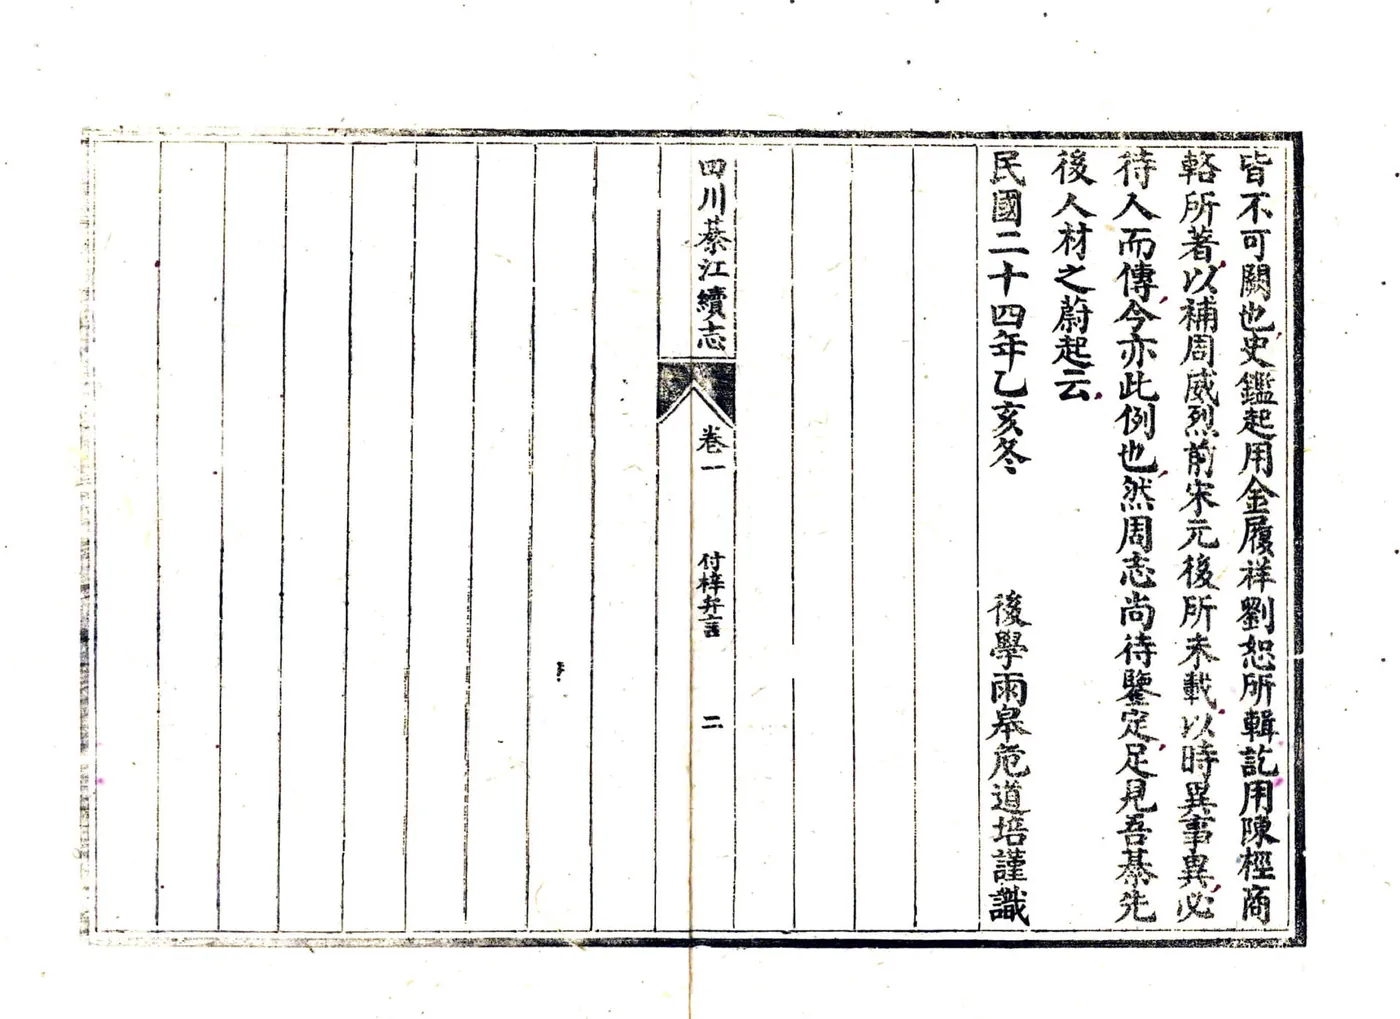 皆不可闕也史鑑起用金履祥劉恕所輯訖用陳桱商
輅所著以補周威烈前宋元後所未載以時異事異必
待人而傳今亦此例也然周志尚待鑒定足見吾綦先
後人材之蔚起云
民國二十四年乙亥冬 後學雨皋危道培謹識
四川綦江續志 卷一 付梓弁言 二